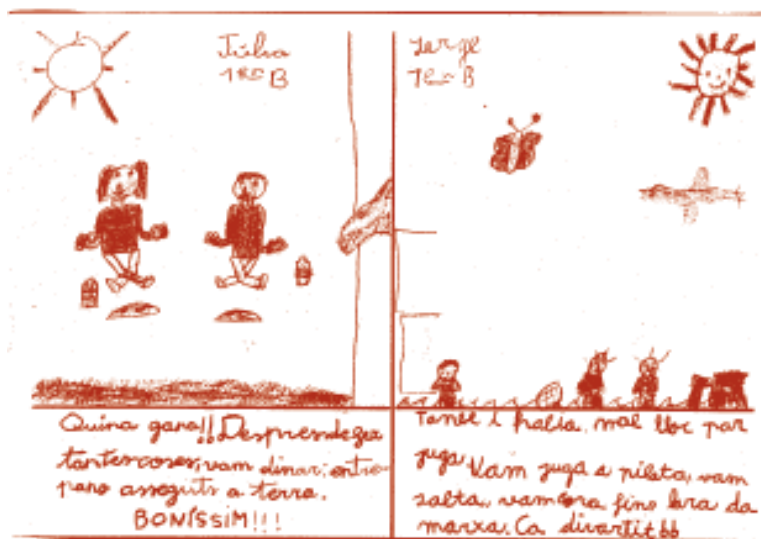 Júlia
1R B
Jorge
1R B
Quina gana!! Despres de fer
tantes coses, vam dinar, entre
pano asseguts a terra.
BONÍSSIM!!!
Tambe i habia, mol lloc par
juga Vam juga a pilota, vam
salta, vam cora, fins lora da
marxa. Ca divartit